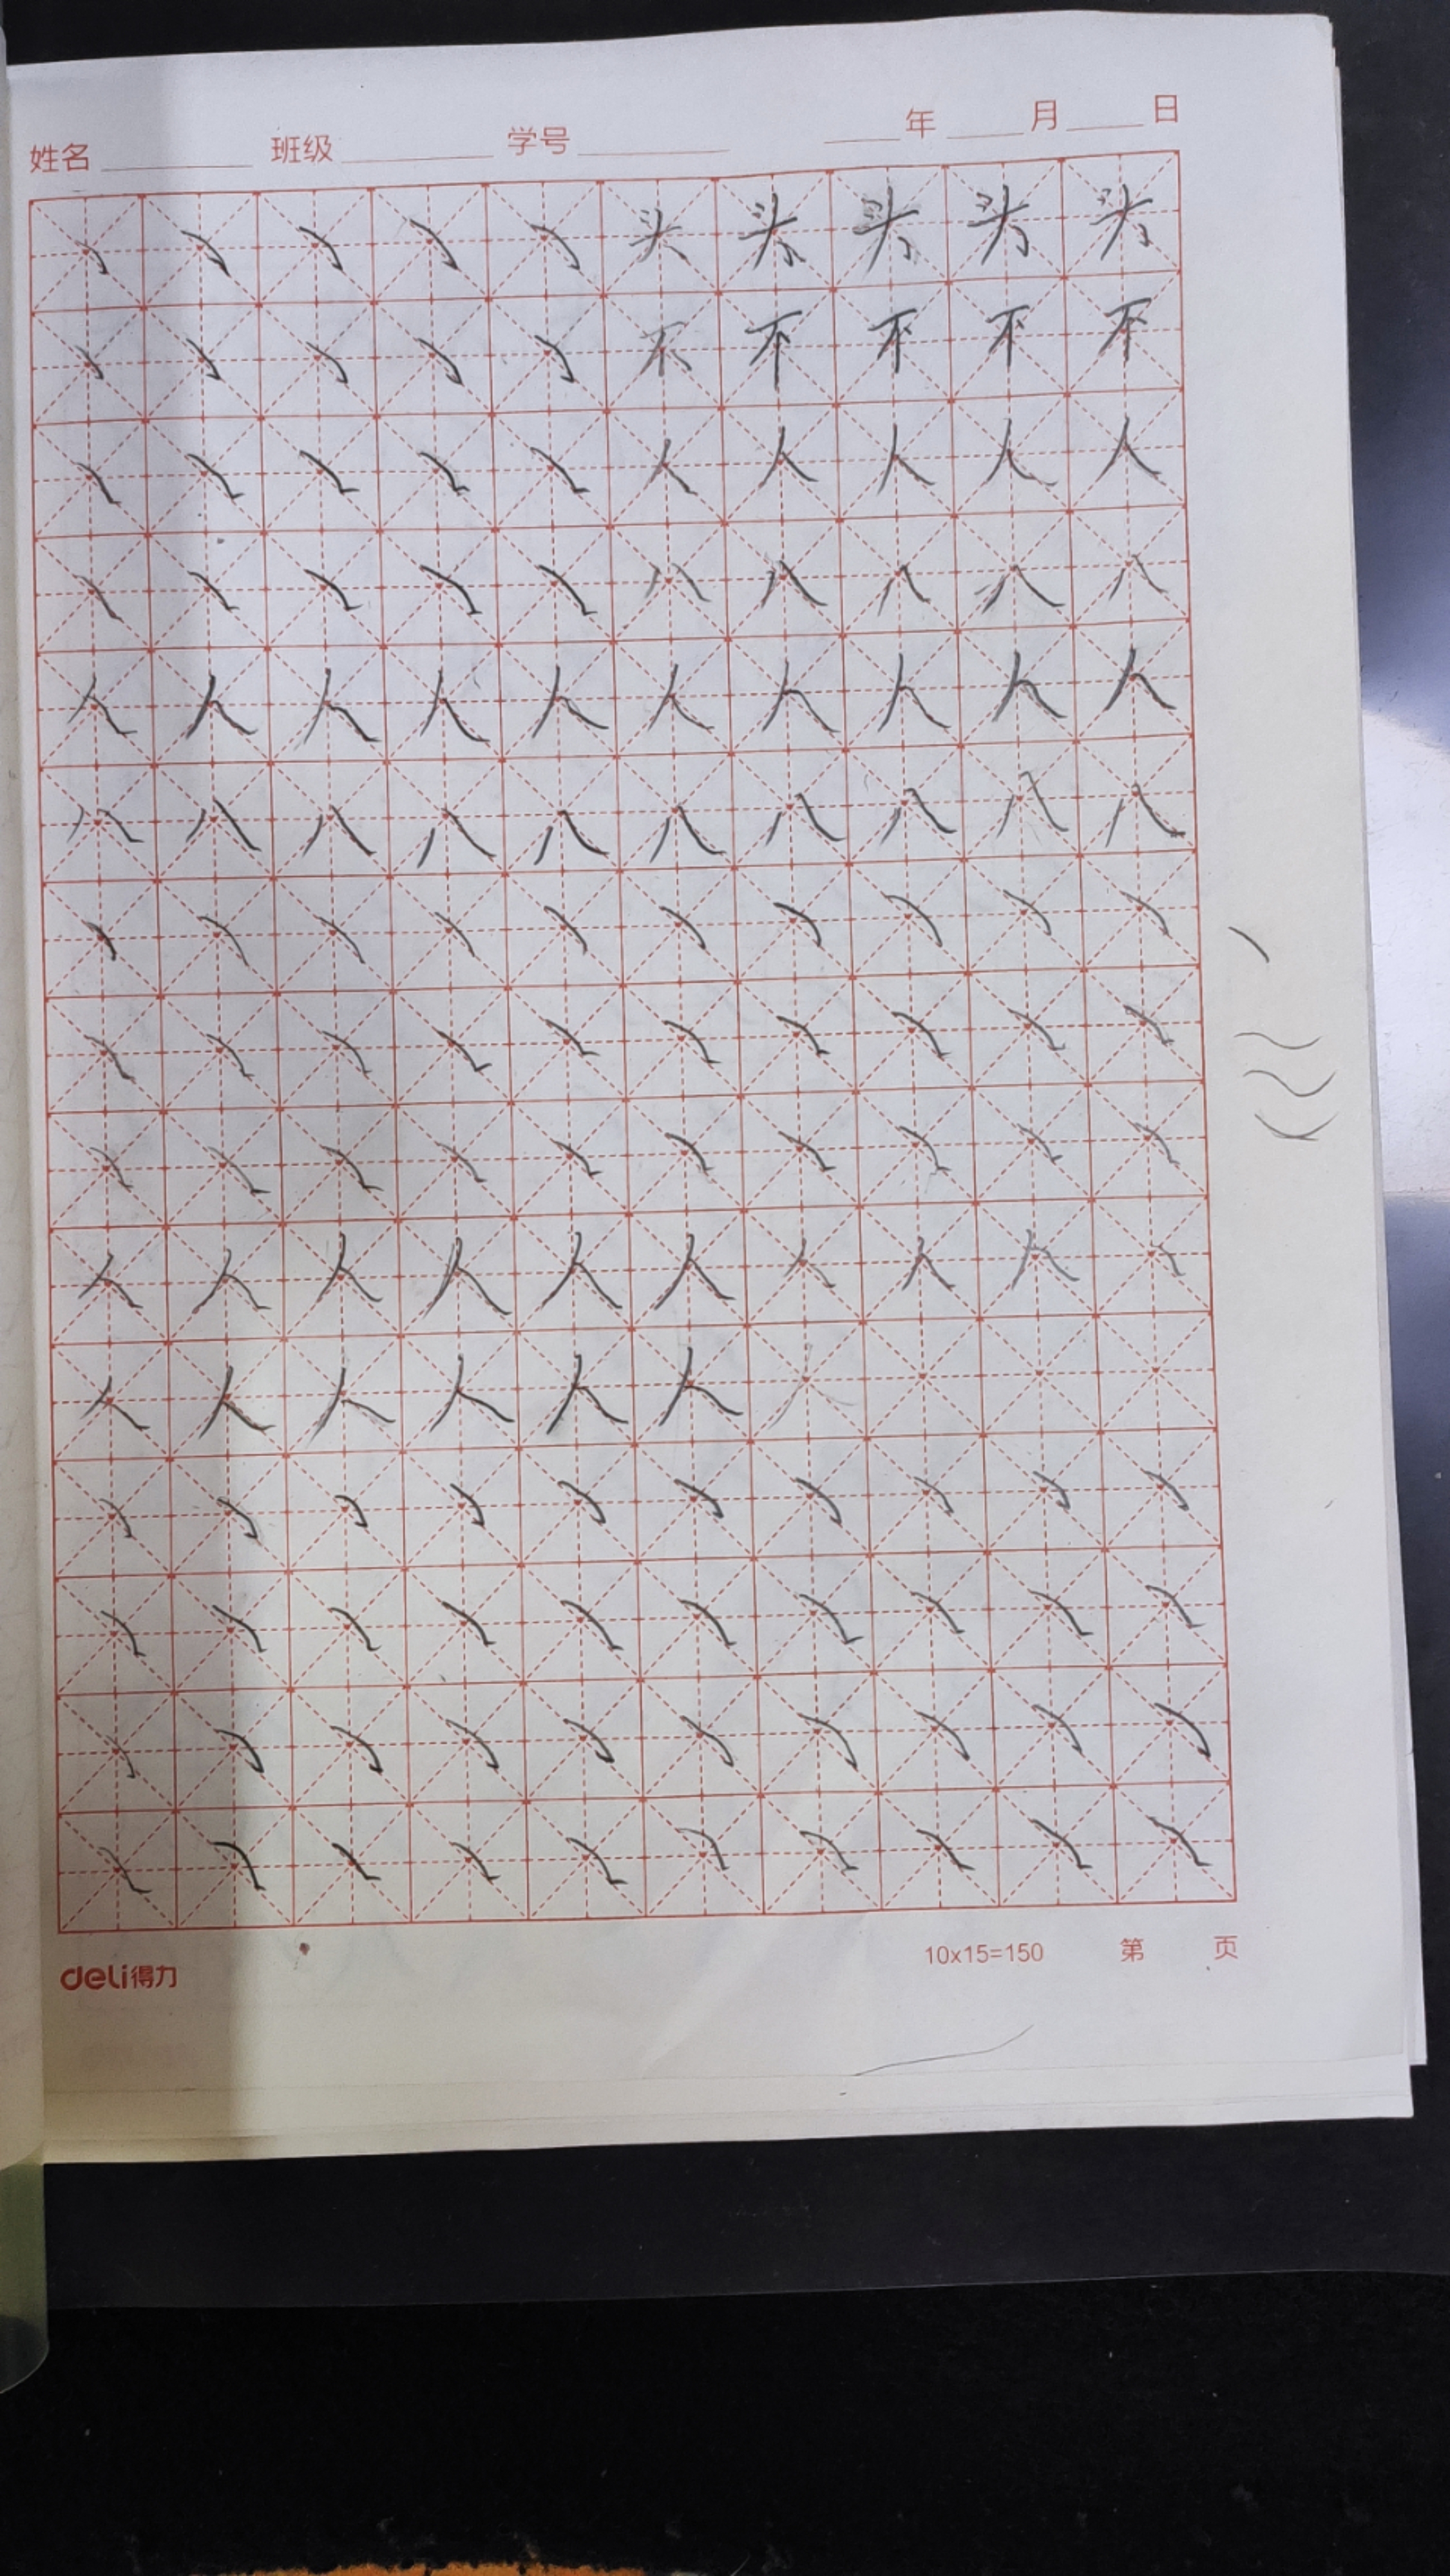 姓名 班级 学号 年 月 日
头 头 头 头 头
不 不 不 不 不
人 人 人 人 人
八 八 八 八 八
人 人 人 人 人 人 人 人 人 人
八 八 八 八 八 八 八 八 八 八
人 人 人 人 人 人 人 人 人
人 人 人 人 人 人 人
deli得力 10x15=150 第 页